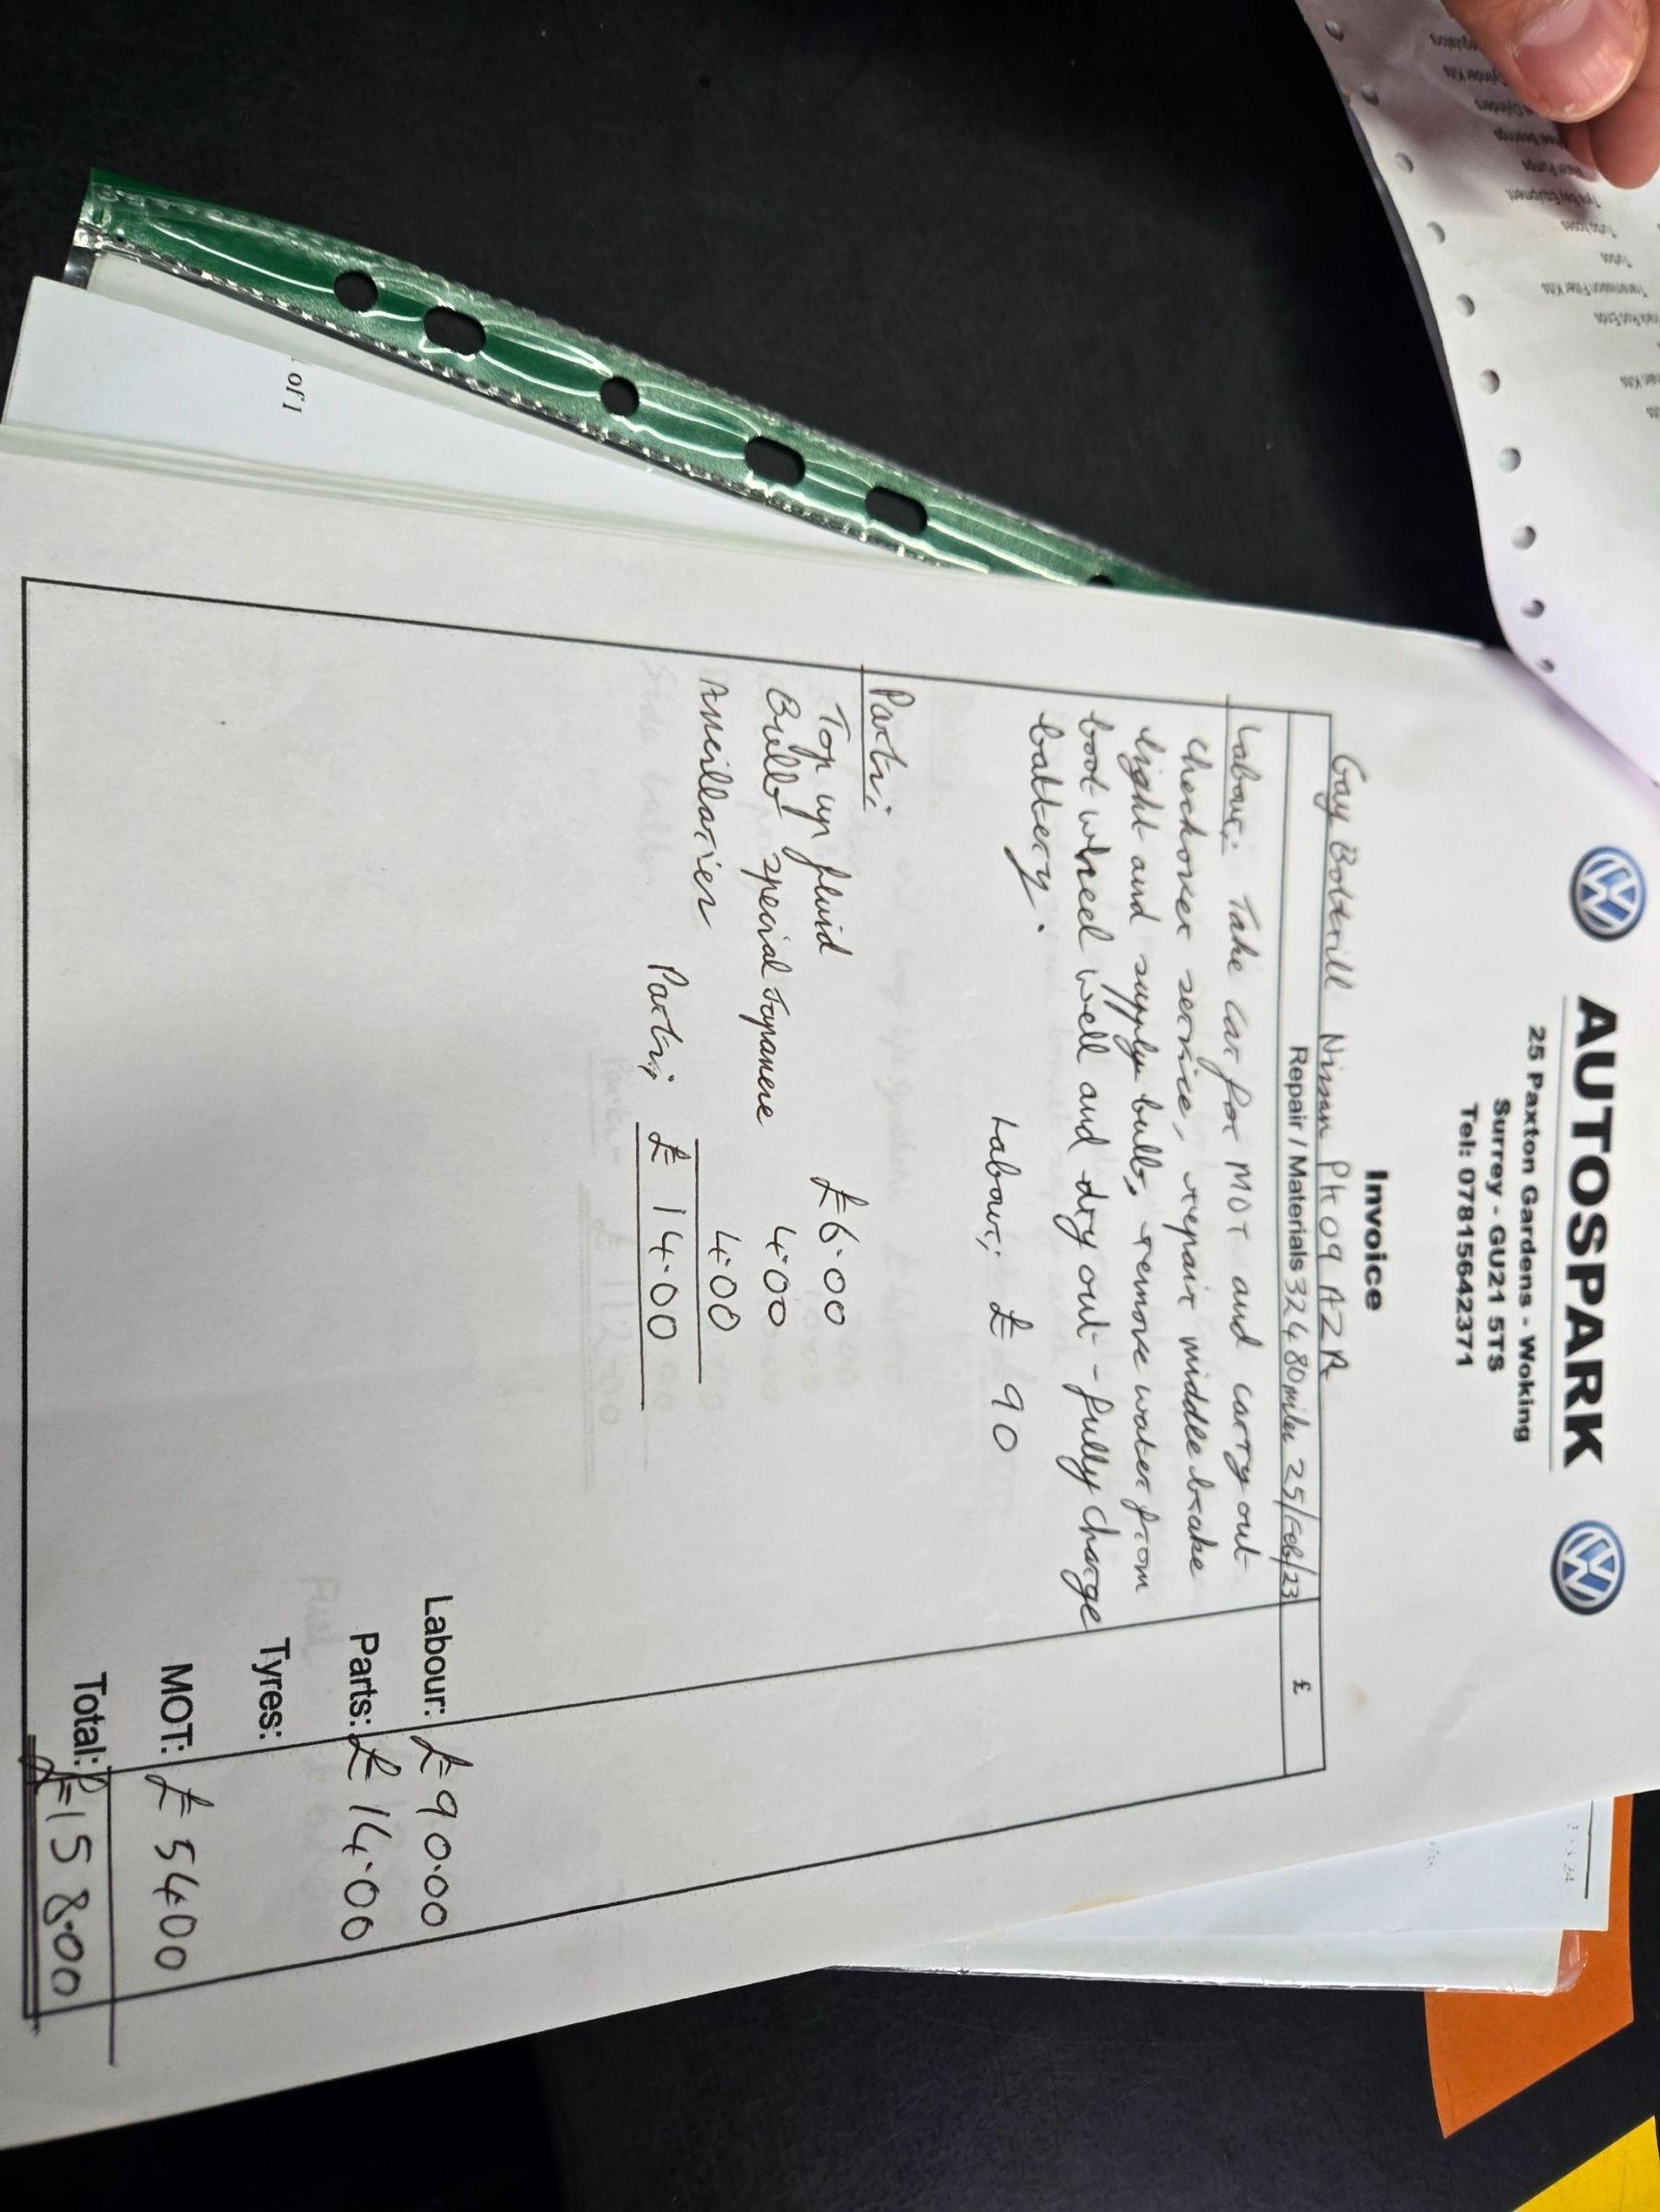 AUTOSPARK
25 Paxton Gardens - Woking
Surrey - GU21 5TS
Tel: 07815642371
Invoice
Gay Bottrill Nissan PK09 AZR
Repair / Materials 32480 miles 25/Feb/23 £
Labour: Take car for MOT and carry out
checkover service, repair middle brake
light and supply bulb, remove water from
boot wheel well and dry out - fully charge
battery.
Labour; £ 90
Parts;
Top up fluid £6.00
Bulb special Japanese 4.00
Ancillaries 4.00
Parts; £ 14.00
Labour: £90.00
Parts: £ 14.00
Tyres:
MOT: £ 5400
Total: £158.00
of 1
Cylinder Kits
Tyre Bay Equipment
Turbo hoses
Turbos
Transmission Filter Kits